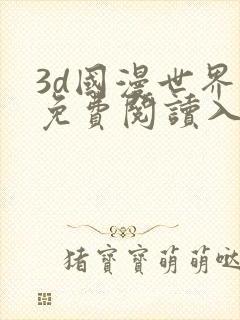 3d國漫世界
免費閱讀入
猪寶寶萌萌噠